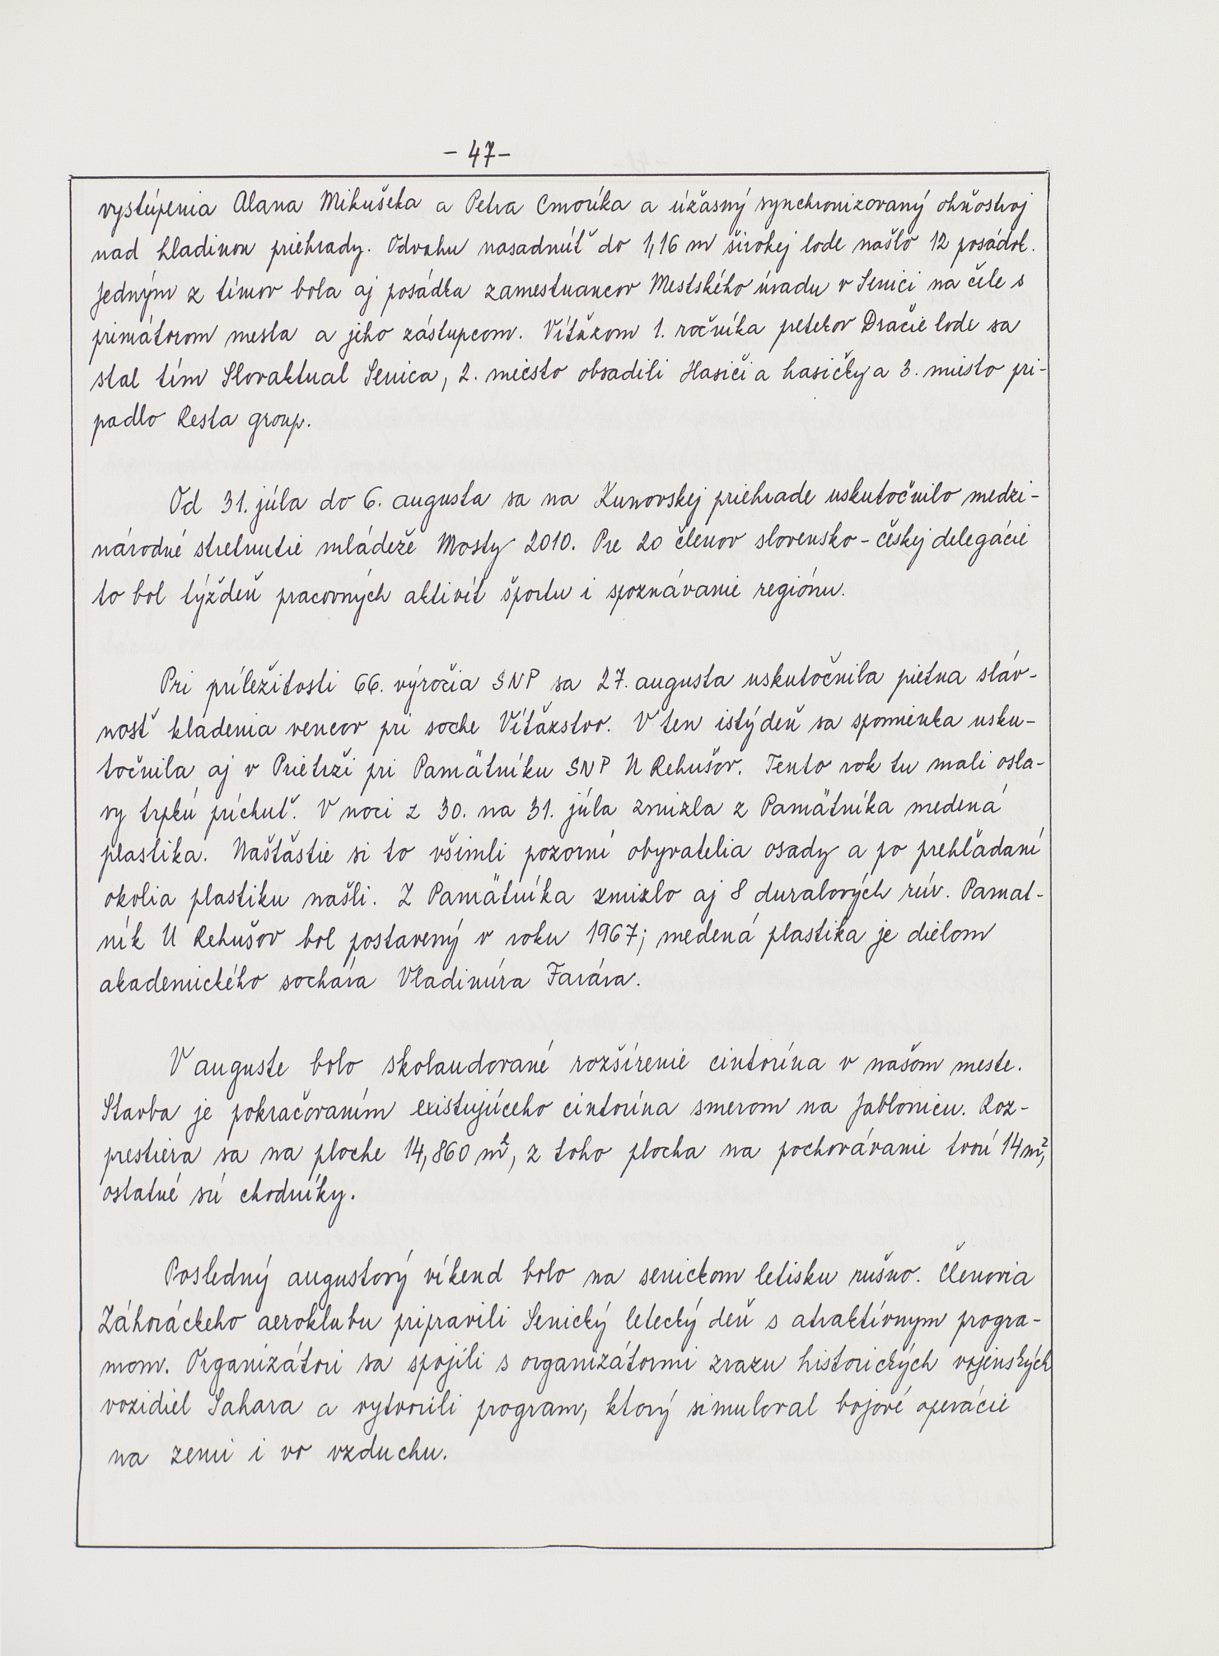 - 47 -
vystúpenia Alana Mikušeka a Petra Cmoríka a úžasný synchronizovaný ohňostroj
nad hladinou priehrady. Odvahu nasadnúť do 1,16 m širokej lode našlo 12 posádok.
Jedným z tímov bola aj posádka zamestnancov Mestského úradu v Senici na čele s
primátorom mesta a jeho zástupcom. Víťazom 1. ročníka pretekov Dračie lode sa
stal tím Slovaktual Senica, 2. miesto obsadili Hasiči a hasičky a 3. miesto pri-
padlo Resta group.
Od 31. júla do 6. augusta sa na Kunovskej priehrade uskutočnilo medzi-
národné stretnutie mládeže Mosty 2010. Pre 20 členov slovensko-českej delegácie
to bol týždeň pracovných aktivít športu i spoznávanie regiónu.
Pri príležitosti 66. výročia SNP sa 27. augusta uskutočnila pietna sláv-
nosť kladenia vencov pri soche Víťazstvo. V ten istý deň sa spomienka usku-
točnila aj v Prietrži pri Pamätníku SNP U Rehušov. Tento rok tu mali osla-
vy trpkú príchuť. V noci z 30. na 31. júla zmizla z Pamätníka medená
plastika. Našťastie si to všimli pozorní obyvatelia osady a po prehľadaní
okolia plastiku našli. Z Pamätníka zmizlo aj 8 duralových rúr. Pamat-
ník U Rehušov bol postavený v roku 1967; medená plastika je dielom
akademického sochára Vladimíra Farára.
V auguste bolo skolaudované rozšírenie cintorína v našom meste.
Stavba je pokračovaním existujúceho cintorína smerom na Jablonicu. Roz-
prestiera sa na ploche 14,860 m², z toho plocha na pochovávanie tvorí 14 m²,
ostatné sú chodníky.
Posledný augustový víkend bolo na senickom letisku rušno. Členovia
Záhoráckeho aeroklubu pripravili Senický letecký deň s atraktívnym progra-
mom. Organizátori sa spojili s organizátormi zrazu historických vojenských
vozidiel Sahara a vytvorili program, ktorý simuloval bojové operácie
na zemi i vo vzduchu.